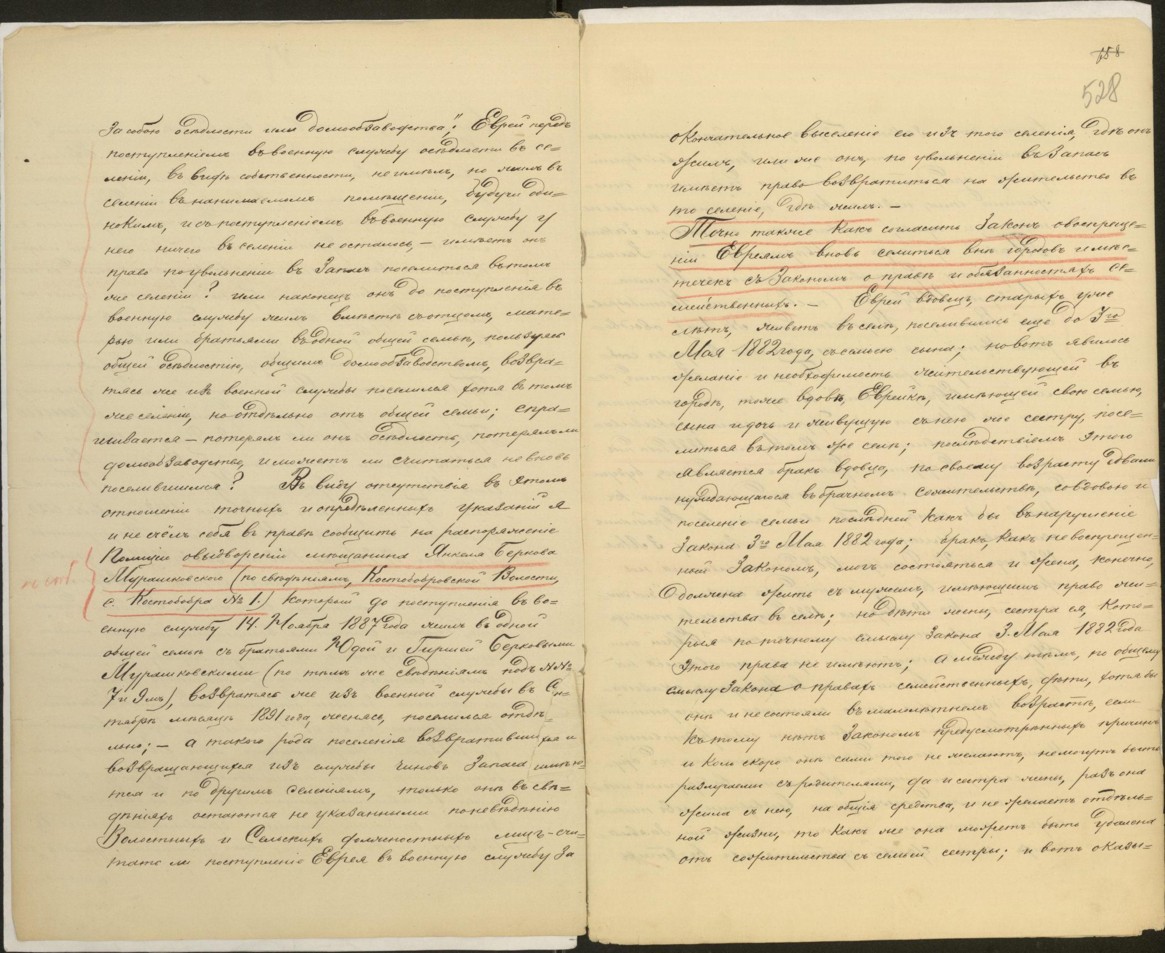 за собою осѣдлости или домообзаводства". Еврей передъ
поступленіемъ въ военную службу осѣдлости въ се=
леніи, въ видѣ собственности, не имѣлъ, но жилъ въ
селеніи въ нанимаемомъ помѣщеніи, будучи оди=
нокимъ, и съ поступленіемъ въ военную службу у
него ничего въ селеніи не осталось, – имѣетъ онъ
право по увольненіи въ Запасъ поселиться въ томъ
же селеніи? или наконецъ онъ до поступленія въ
военную службу жилъ вмѣстѣ съ отцомъ, мате=
рью или братьями въ одной общей семьѣ, пользуясь
общей осѣдлостію, общимъ домообзаводствомъ, возвра=
тясь же изъ военной службы поселился хотя въ томъ
же селеніи, но отдѣльно отъ общей семьи; спра=
шивается – потерялъ ли онъ осѣдлость, потерялъ ли
домообзаводство, и можетъ ли считаться не вновь
поселившимся? Въ виду отсутствія въ этомъ
отношеніи точныхъ и опредѣленныхъ указаній я
и не счёлъ себя въ правѣ сообщить на распоряженіе
Полиціи о выдвореніи мѣщанина Янкеля Беркова
Мурашковскаго (по свѣдѣніямъ, Костобобровской Волости,
с. Костобобра № 1.) который до поступленія въ во=
енную службу 14 Ноября 1887 года жилъ въ одной
общей семьѣ съ братьями Юдой и Гиршей Берковыми
Мурашковскими (по тѣмъ же свѣдѣніямъ подъ №№
7 и 9мъ), возвратясь же изъ военной службы въ Сен=
тябрѣ мѣсяцѣ 1891 года, женясь, поселился отдѣ=
льно; – а такого рода поселенія возвратившихся и
возвращающихся изъ службы чиновъ Запаса имѣю=
тся и по другимъ селеніямъ, только они въ свѣ=
дѣніяхъ остаются не указанными по невѣдѣнію
Волостныхъ и Сельскихъ должностныхъ лицъ – счи=
тать ли поступленіе Еврея въ военную службу за
158
528
окончательное выселеніе его изъ того селенія, гдѣ онъ
жилъ, или же онъ, по увольненіи въ Запасъ
имѣетъ право возвратиться на жительство въ
то селеніе, гдѣ жилъ. –
Точно также какъ согласить Законъ о воспреще=
ніи Евреямъ вновь селиться внѣ городовъ и мѣс=
течекъ съ Закономъ о правѣ и обязанностяхъ се=
мейственныхъ. – Еврей вдовецъ, старыхъ уже
лѣтъ, живетъ въ селѣ, поселившись еще до 3го
Мая 1882 года, съ семьею сына; но вотъ явилось
желаніе и необходимость жительствующей въ
городѣ, тоже вдовѣ, Еврейкѣ, имѣющей свою семью,
сына и дочь и живущую съ нею же сестру, посе=
литься въ томъ же селѣ; послѣдствіемъ этого
является бракъ вдовца, по своему возрасту едвали
нуждающагося въ брачномъ сожительствѣ, со вдовою и
поселеніе семьи послѣдней какъ бы въ нарушеніе
Закона 3го Мая 1882 года; бракъ, какъ не воспрещен=
ный Закономъ, могъ состояться и жена, конечно,
должна жить съ мужемъ, имѣющимъ право жи=
тельства въ селѣ; но дѣти жены, сестра ея, кото=
рыя по точному смыслу Закона 3 Мая 1882 года
этого права не имѣютъ; а между тѣмъ, по общему
смыслу Закона о правахъ семейственныхъ, дѣти, хотя бы
они и не состояли въ малолѣтнемъ возрастѣ, если
къ тому нѣтъ Закономъ предусмотренныхъ причинъ
и коль скоро они сами того не желаютъ, не могутъ быть
разлучаемы съ родителями, да и сестра жены, разъ она
жила съ нею, на общія средства, и не желаетъ отдѣль=
ной жизни, то какъ же она можетъ быть удалена
отъ сожительства съ семьей сестры; и вотъ оказы=